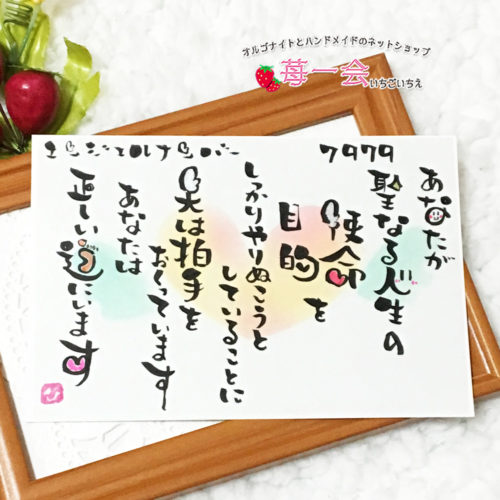 オルゴナイトとハンドメイドのネットショップ
苺一会
いちごいちえ
7979
あなたが
聖なる人生の
使命
目的を
しっかりやりぬこうと
していることに
天は拍手を
おくっています
あなたは
正しい道にいます